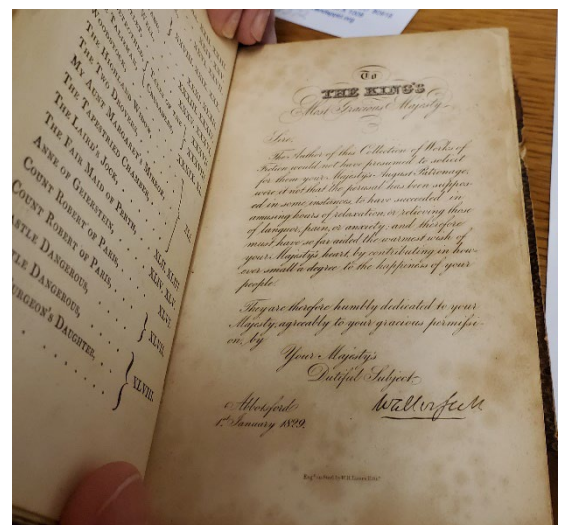 THE HIGHLAND WIDOW,
THE TWO DROVERS,
MY AUNT MARGARET'S MIRROR,
THE TAPESTRIED CHAMBER,
THE LAIRD'S JOCK,
THE FAIR MAID OF PERTH,
ANNE OF GEIERSTEIN,
COUNT ROBERT OF PARIS,
COUNT ROBERT OF PARIS,
CASTLE DANGEROUS,
DANGEROUS,
SURGEON'S DAUGHTER,
XLVI.
XLVII.
XLVIII.
To
THE KING'S
Most Gracious Majesty.
Sire,
The Author of this Collection of Works of
Fiction would not have presumed to solicit
for them your Majesty's August Patronage,
were it not that the perusal has been suppos-
ed in some instances, to have succeeded in
amusing hours of relaxation, or relieving those
of languor, pain, or anxiety, and therefore
must have so far aided the warmest wish of
your Majesty's heart, by contributing in how-
ever small a degree to the happiness of your
people.
They are therefore humbly dedicated to your
Majesty, agreeably to your gracious permissi-
on, by
Your Majesty's
Dutiful Subject,
Walter Scott
Abbotsford
1st January 1829.